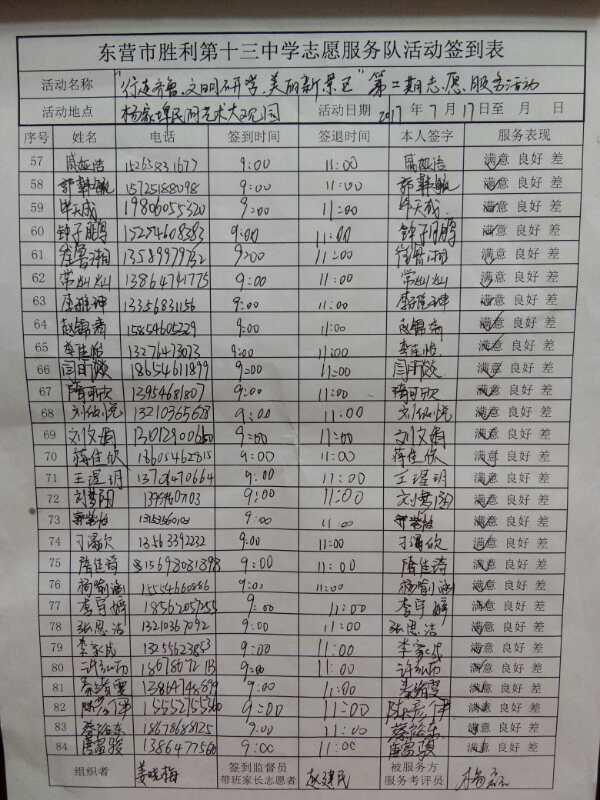 东营市胜利第十三中学志愿服务队活动签到表
活动名称 "行走齐鲁,文明开学,美丽新景区"第二期志愿服务活动
活动地点 杨家埠民间艺术大观园 活动日期 2017 年 7 月 17日至 月 日
序号 姓名 电话 签到时间 签退时间 本人签字 服务表现
57 9:00 11:00 满意 良好 差
58 郭韩敏 15725188098 9:00 11:00 郭韩敏 满意 良好 差
59 毕天成 19806055320 9:00 11:00 毕天成 满意 良好 差
60 钟子鹏 15254608383 9:00 11:00 钟子鹏 满意 良好 差
61 崔鲁湘 13589979752 9:00 11:00 崔鲁湘 满意 良好 差
62 常灿灿 13864741775 9:00 11:00 常灿灿 满意 良好 差
63 13356831156 9:00 11:00 满意 良好 差
64 赵锦斋 15854605229 9:00 11:00 赵锦斋 满意 良好 差
65 李佳怡 13276473073 9:00 11:00 李佳怡 满意 良好 差
66 18654611899 9:00 11:00 满意 良好 差
67 隋可欣 13954681807 9:00 11:00 隋可欣 满意 良好 差
68 刘依悦 13210365628 9:00 11:00 刘依悦 满意 良好 差
69 刘文娟 9:00 11:00 刘文娟 满意 良好 差
70 蒋佳欣 18605462815 9:00 11:00 蒋佳欣 满意 良好 差
71 王瑆玥 9:00 11:00 王瑆玥 满意 良好 差
72 刘梦阳 9:00 11:00 刘梦阳 满意 良好 差
73 9:00 11:00 满意 良好 差
74 13563392232 9:00 11:00 满意 良好 差
75 隋佳琦 15698031898 9:00 11:00 隋佳琦 满意 良好 差
76 杨俞涵 9:00 11:00 杨俞涵 满意 良好 差
77 李宇婷 18562055255 9:00 11:00 李宇婷 满意 良好 差
78 张恩洁 13210367092 9:00 11:00 张恩洁 满意 良好 差
79 李家民 9:00 11:00 李家民 满意 良好 差
80 许弘西 9:00 11:00 许弘西 满意 良好 差
81 秦绪雯 13864748699 9:00 11:00 秦绪雯 满意 良好 差
82 陈彦伊 9:00 11:00 陈彦伊 满意 良好 差
83 18678688125 9:00 11:00 满意 良好 差
84 唐富骏 9:00 11:00 唐富骏 满意 良好 差
组织者 姜晓梅 签到监督员 带班家长志愿者 赵建民 被服务方 服务考评员